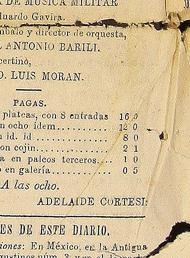 A DE MUSICA MILITAR
duardo Gavira.
mbalo y director de orquesta,
ANTONIO BARILI.
certino,
D. LUIS MORAN.
PAGAS.
plateas, con 8 entradas 16 0
n ocho idem 12 0
n id. id. 8 0
on cojin 2 1
a en palcos terceros 1 0
o en galería 0 5
A las ocho.
ADELAIDE CORTESI
ES DE ESTE DIARIO.
iones: En México, en la Antigua